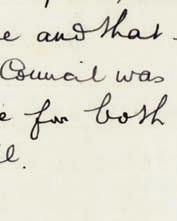 e and that
Council was
e for both
ll.